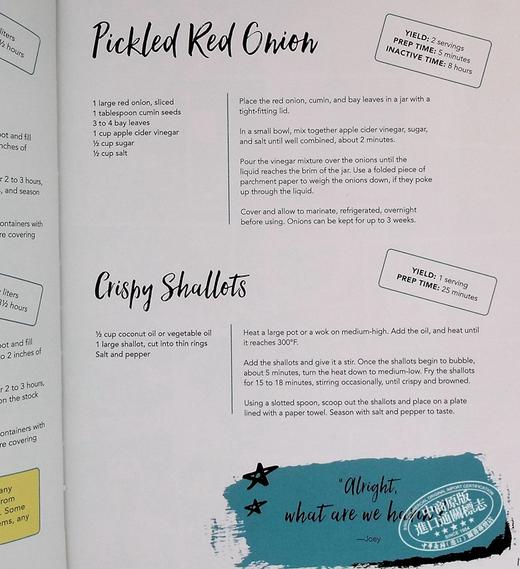 liters
½ hours
ot and fill
nches of
r 2 to 3 hours,
, and season
ontainers with
re covering
liters
½ hours
ot and fill
o 2 inches of
r 2 to 3 hours,
on the stock
ontainers with
re covering
any
from
. Some
ems, any
Pickled Red Onion
YIELD: 2 servings
PREP TIME: 5 minutes
INACTIVE TIME: 8 hours
1 large red onion, sliced
1 tablespoon cumin seeds
3 to 4 bay leaves
1 cup apple cider vinegar
½ cup sugar
½ cup salt
Place the red onion, cumin, and bay leaves in a jar with a
tight-fitting lid.
In a small bowl, mix together apple cider vinegar, sugar,
and salt until well combined, about 2 minutes.
Pour the vinegar mixture over the onions until the
liquid reaches the brim of the jar. Use a folded piece of
parchment paper to weigh the onions down, if they poke
up through the liquid.
Cover and allow to marinate, refrigerated, overnight
before using. Onions can be kept for up to 3 weeks.
Crispy Shallots
YIELD: 1 serving
PREP TIME: 25 minutes
½ cup coconut oil or vegetable oil
1 large shallot, cut into thin rings
Salt and pepper
Heat a large pot or a wok on medium-high. Add the oil, and heat until
it reaches 300°F.
Add the shallots and give it a stir. Once the shallots begin to bubble,
about 5 minutes, turn the heat down to medium-low. Fry the shallots
for 15 to 18 minutes, stirring occasionally, until crispy and browned.
Using a slotted spoon, scoop out the shallots and place on a plate
lined with a paper towel. Season with salt and pepper to taste.
"Alright,
what are we
—Joey
中商原版
進口通關標志